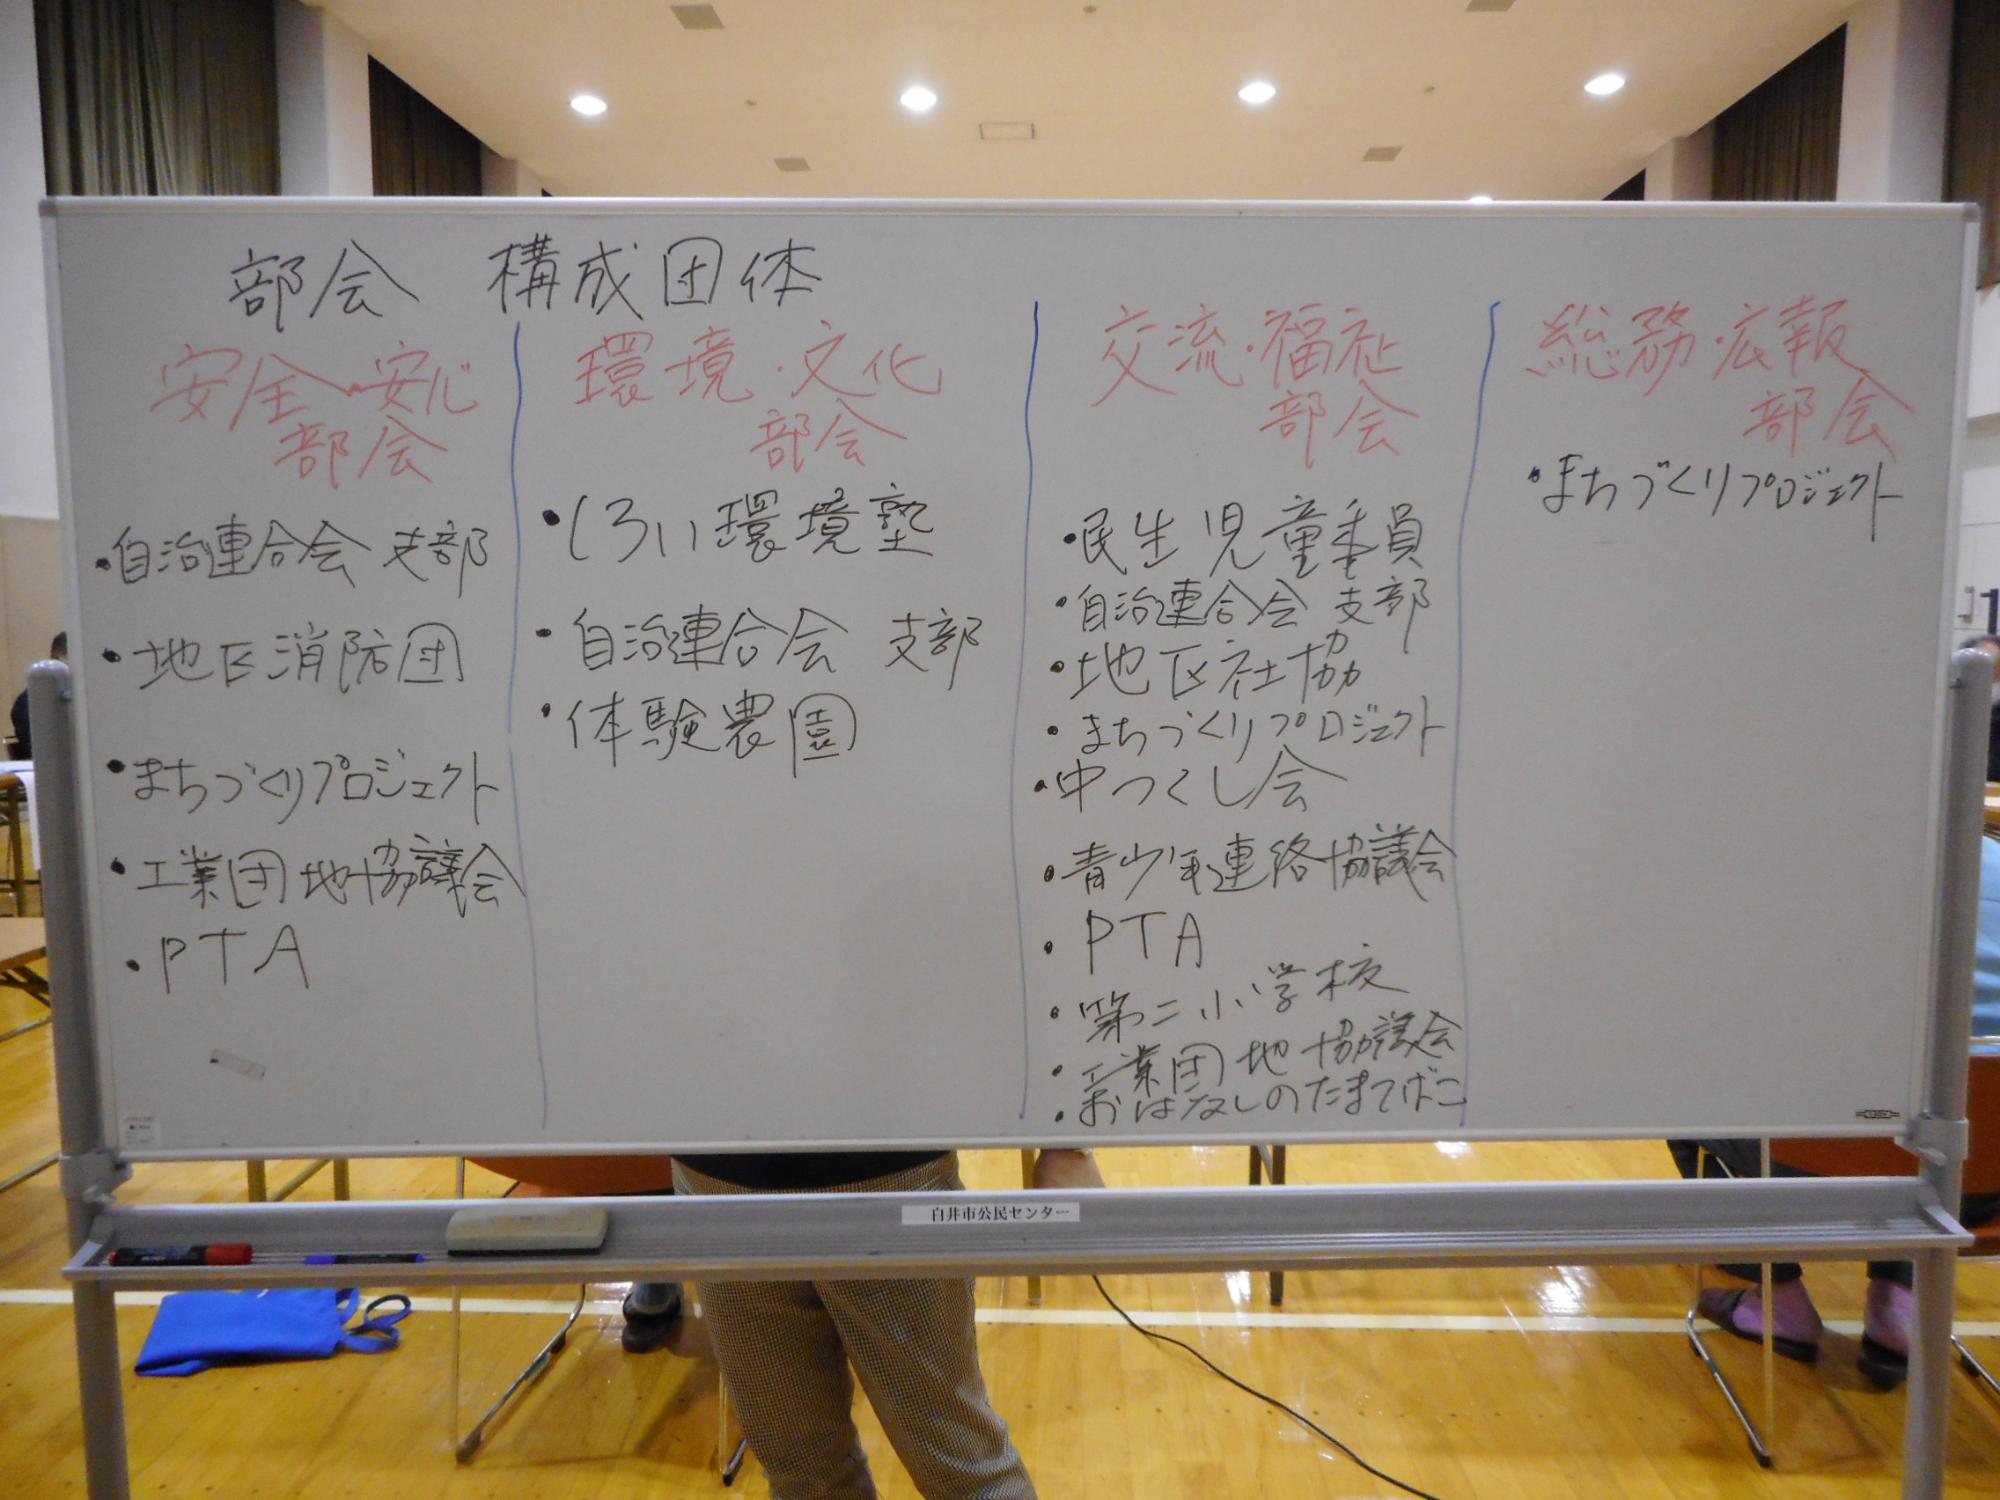 部会 構成団体
安全・安心
部会
・自治連合会 支部
・地区消防団
・まちづくりプロジェクト
・工業団地協議会
・PTA
環境・文化
部会
・しろい環境塾
・自治連合会 支部
・体験農園
交流・福祉
部会
・民生児童委員
・自治連合会 支部
・地区社協
・まちづくりプロジェクト
・中つくし会
・青少年連絡協議会
・PTA
・第二小学校
・工業団地協議会
・おはなしのたまてばこ
総務・広報
部会
・まちづくりプロジェクト
白井市公民センター